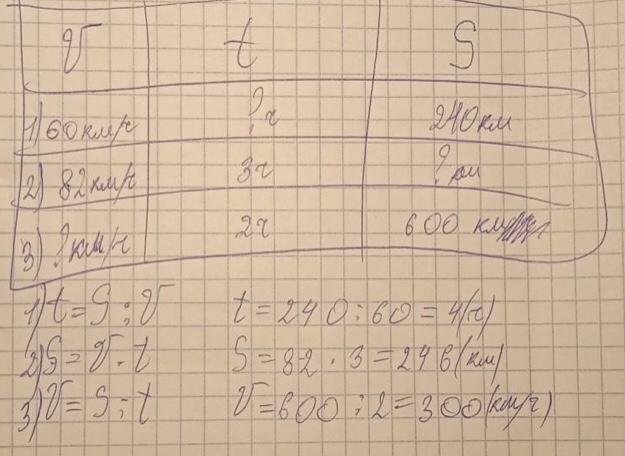 V t S
1) 60км/ч ?ч 240км
2) 82км/ч 3ч ?км
3) ?км/ч 2ч 600 км
1) t = S : V t = 240 : 60 = 4(ч)
2) S = V · t S = 82 · 3 = 246(км)
3) V = S : t V = 600 : 2 = 300(км/ч)